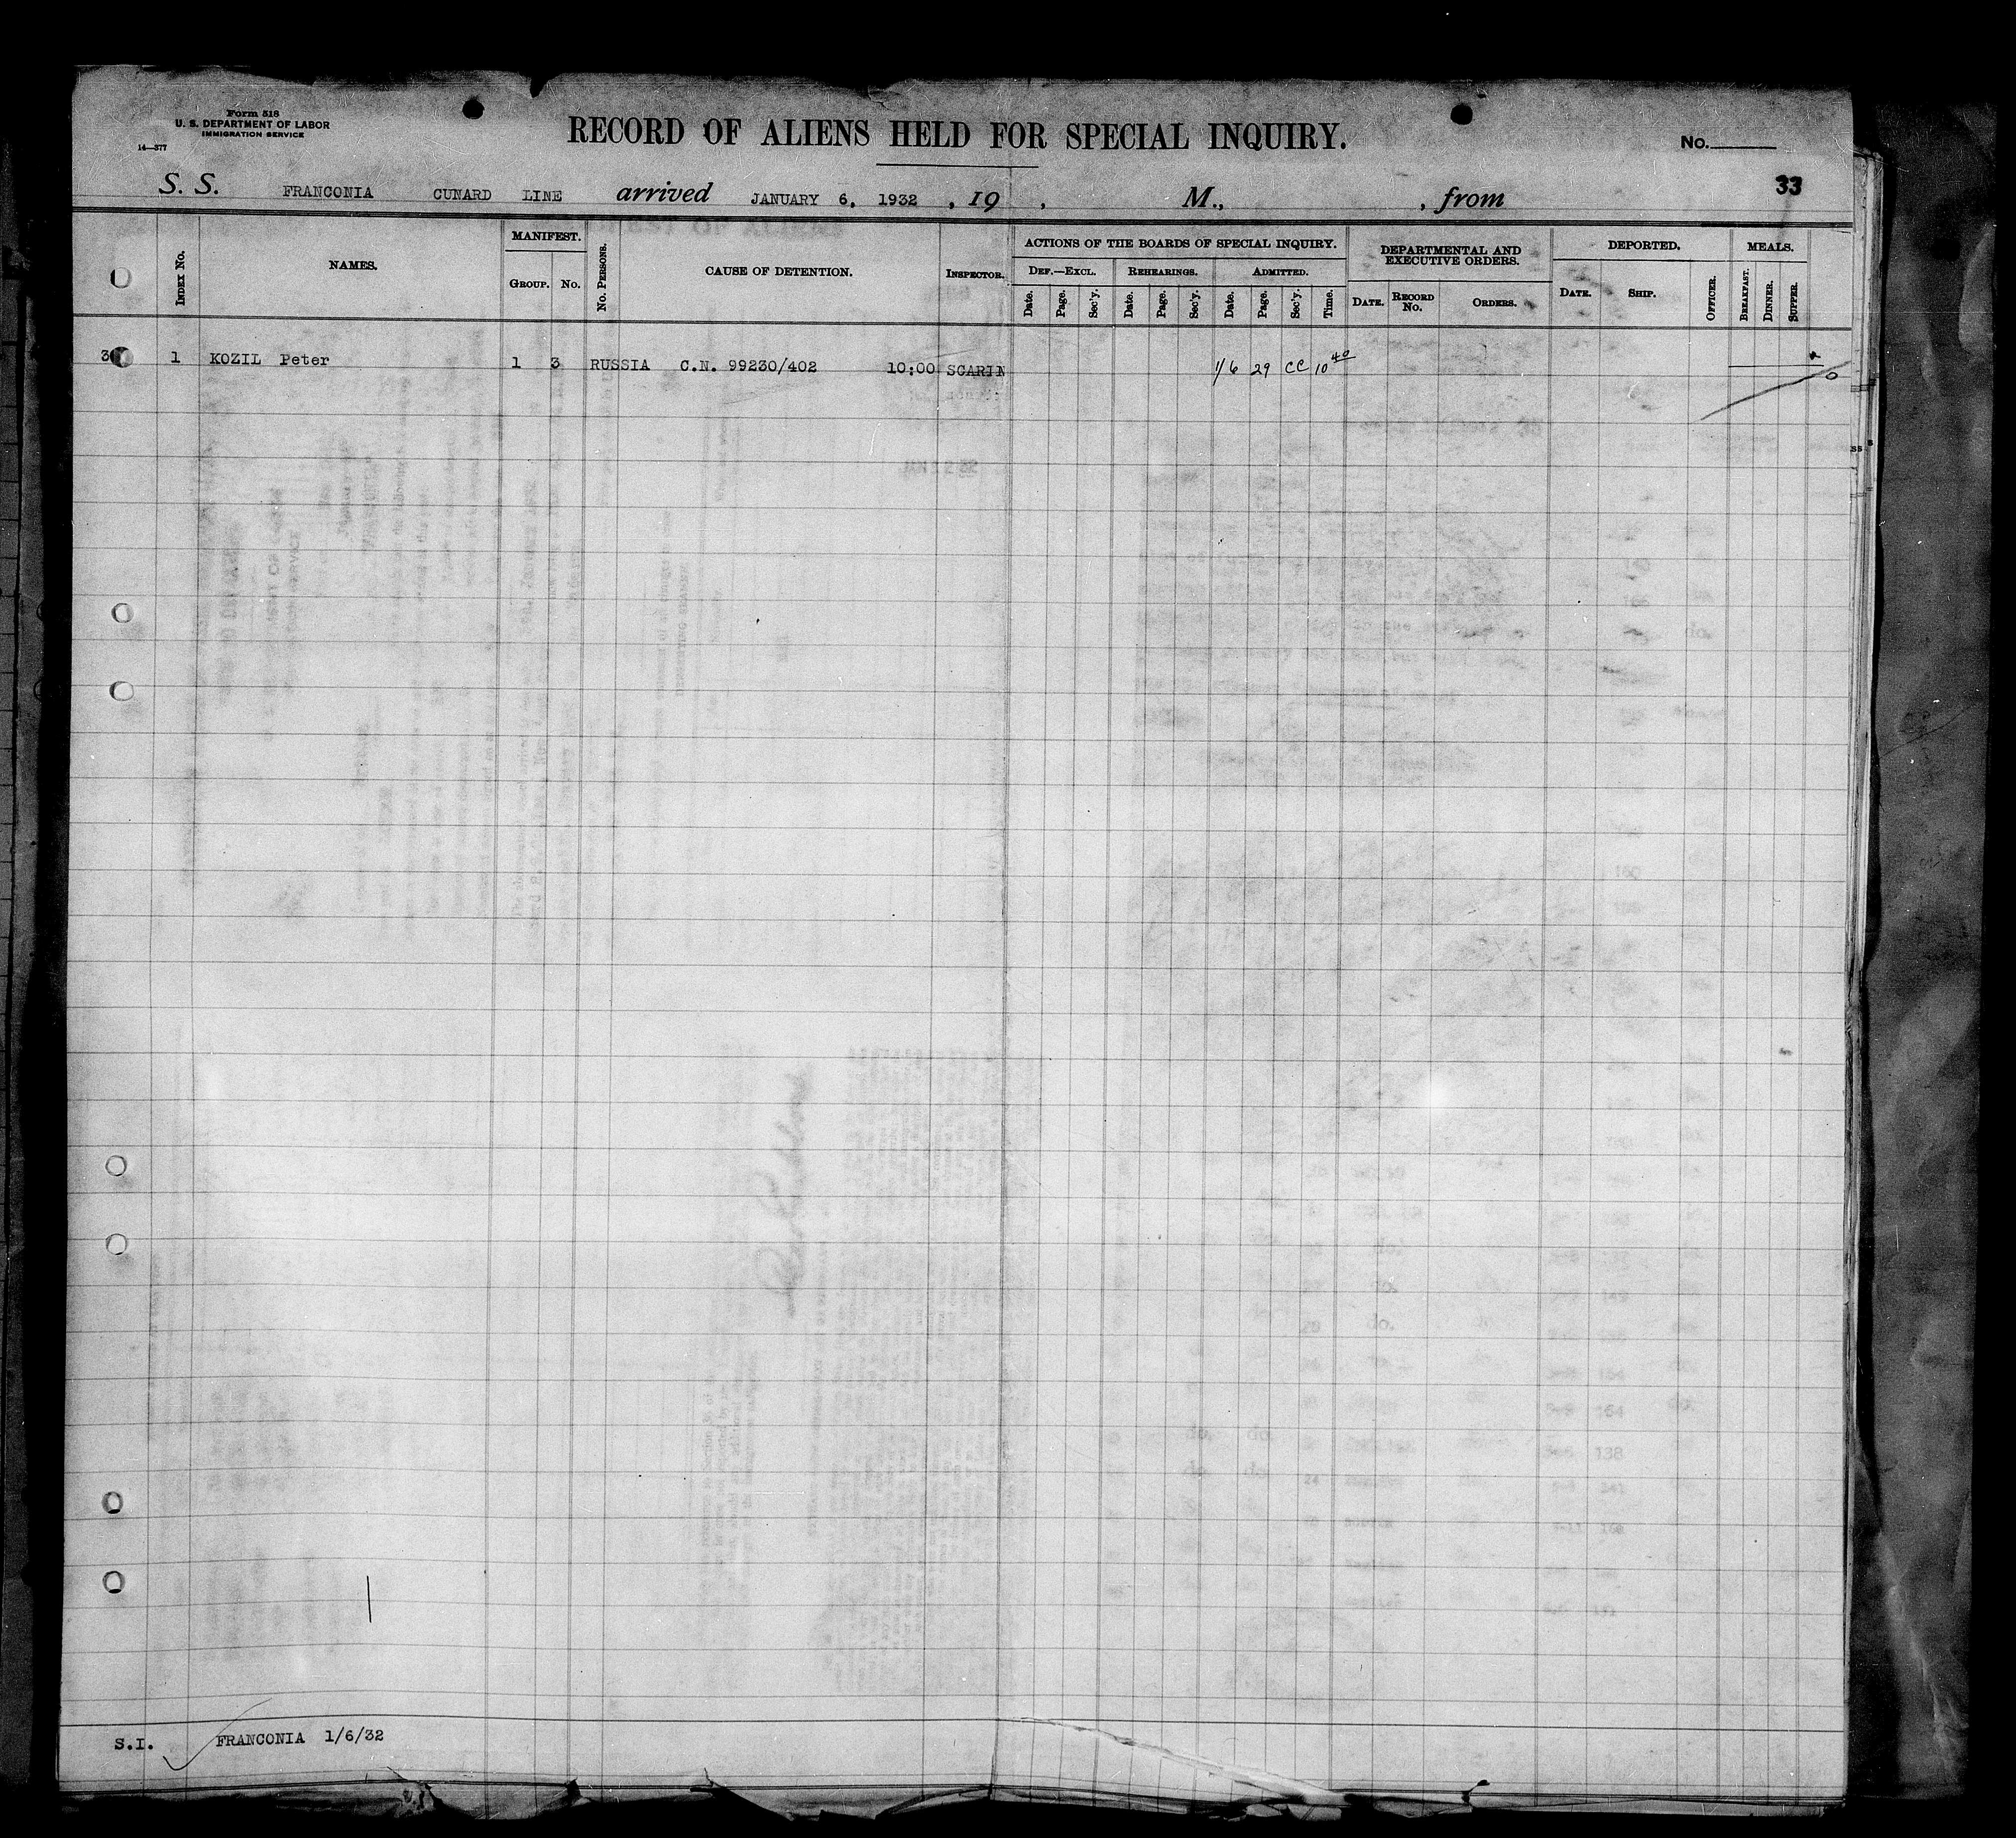 Form 518
U. S. DEPARTMENT OF LABOR
IMMIGRATION SERVICE
14—377
RECORD OF ALIENS HELD FOR SPECIAL INQUIRY.
No.
33
S. S. FRANCONIA CUNARD LINE arrived JANUARY 6, 1932 , 19 , M., , from
INDEX No. NAMES. MANIFEST. GROUP. No. No. PERSONS. CAUSE OF DETENTION. INSPECTOR. ACTIONS OF THE BOARDS OF SPECIAL INQUIRY. DEPARTMENTAL AND EXECUTIVE ORDERS. DEPORTED. MEALS.
DEF.—EXCL. REHEARINGS. ADMITTED.
Date. Page. Sec'y. Date. Page. Sec'y. Date. Page. Sec'y. Time. DATE. RECORD No. ORDERS. DATE. SHIP. OFFICER. BREAKFAST. DINNER. SUPPER.
1 KOZIL Peter 1 3 RUSSIA C.N. 99230/402 10:00 SCARIN 1/6 29 CC 10 40
S.I. FRANCONIA 1/6/32